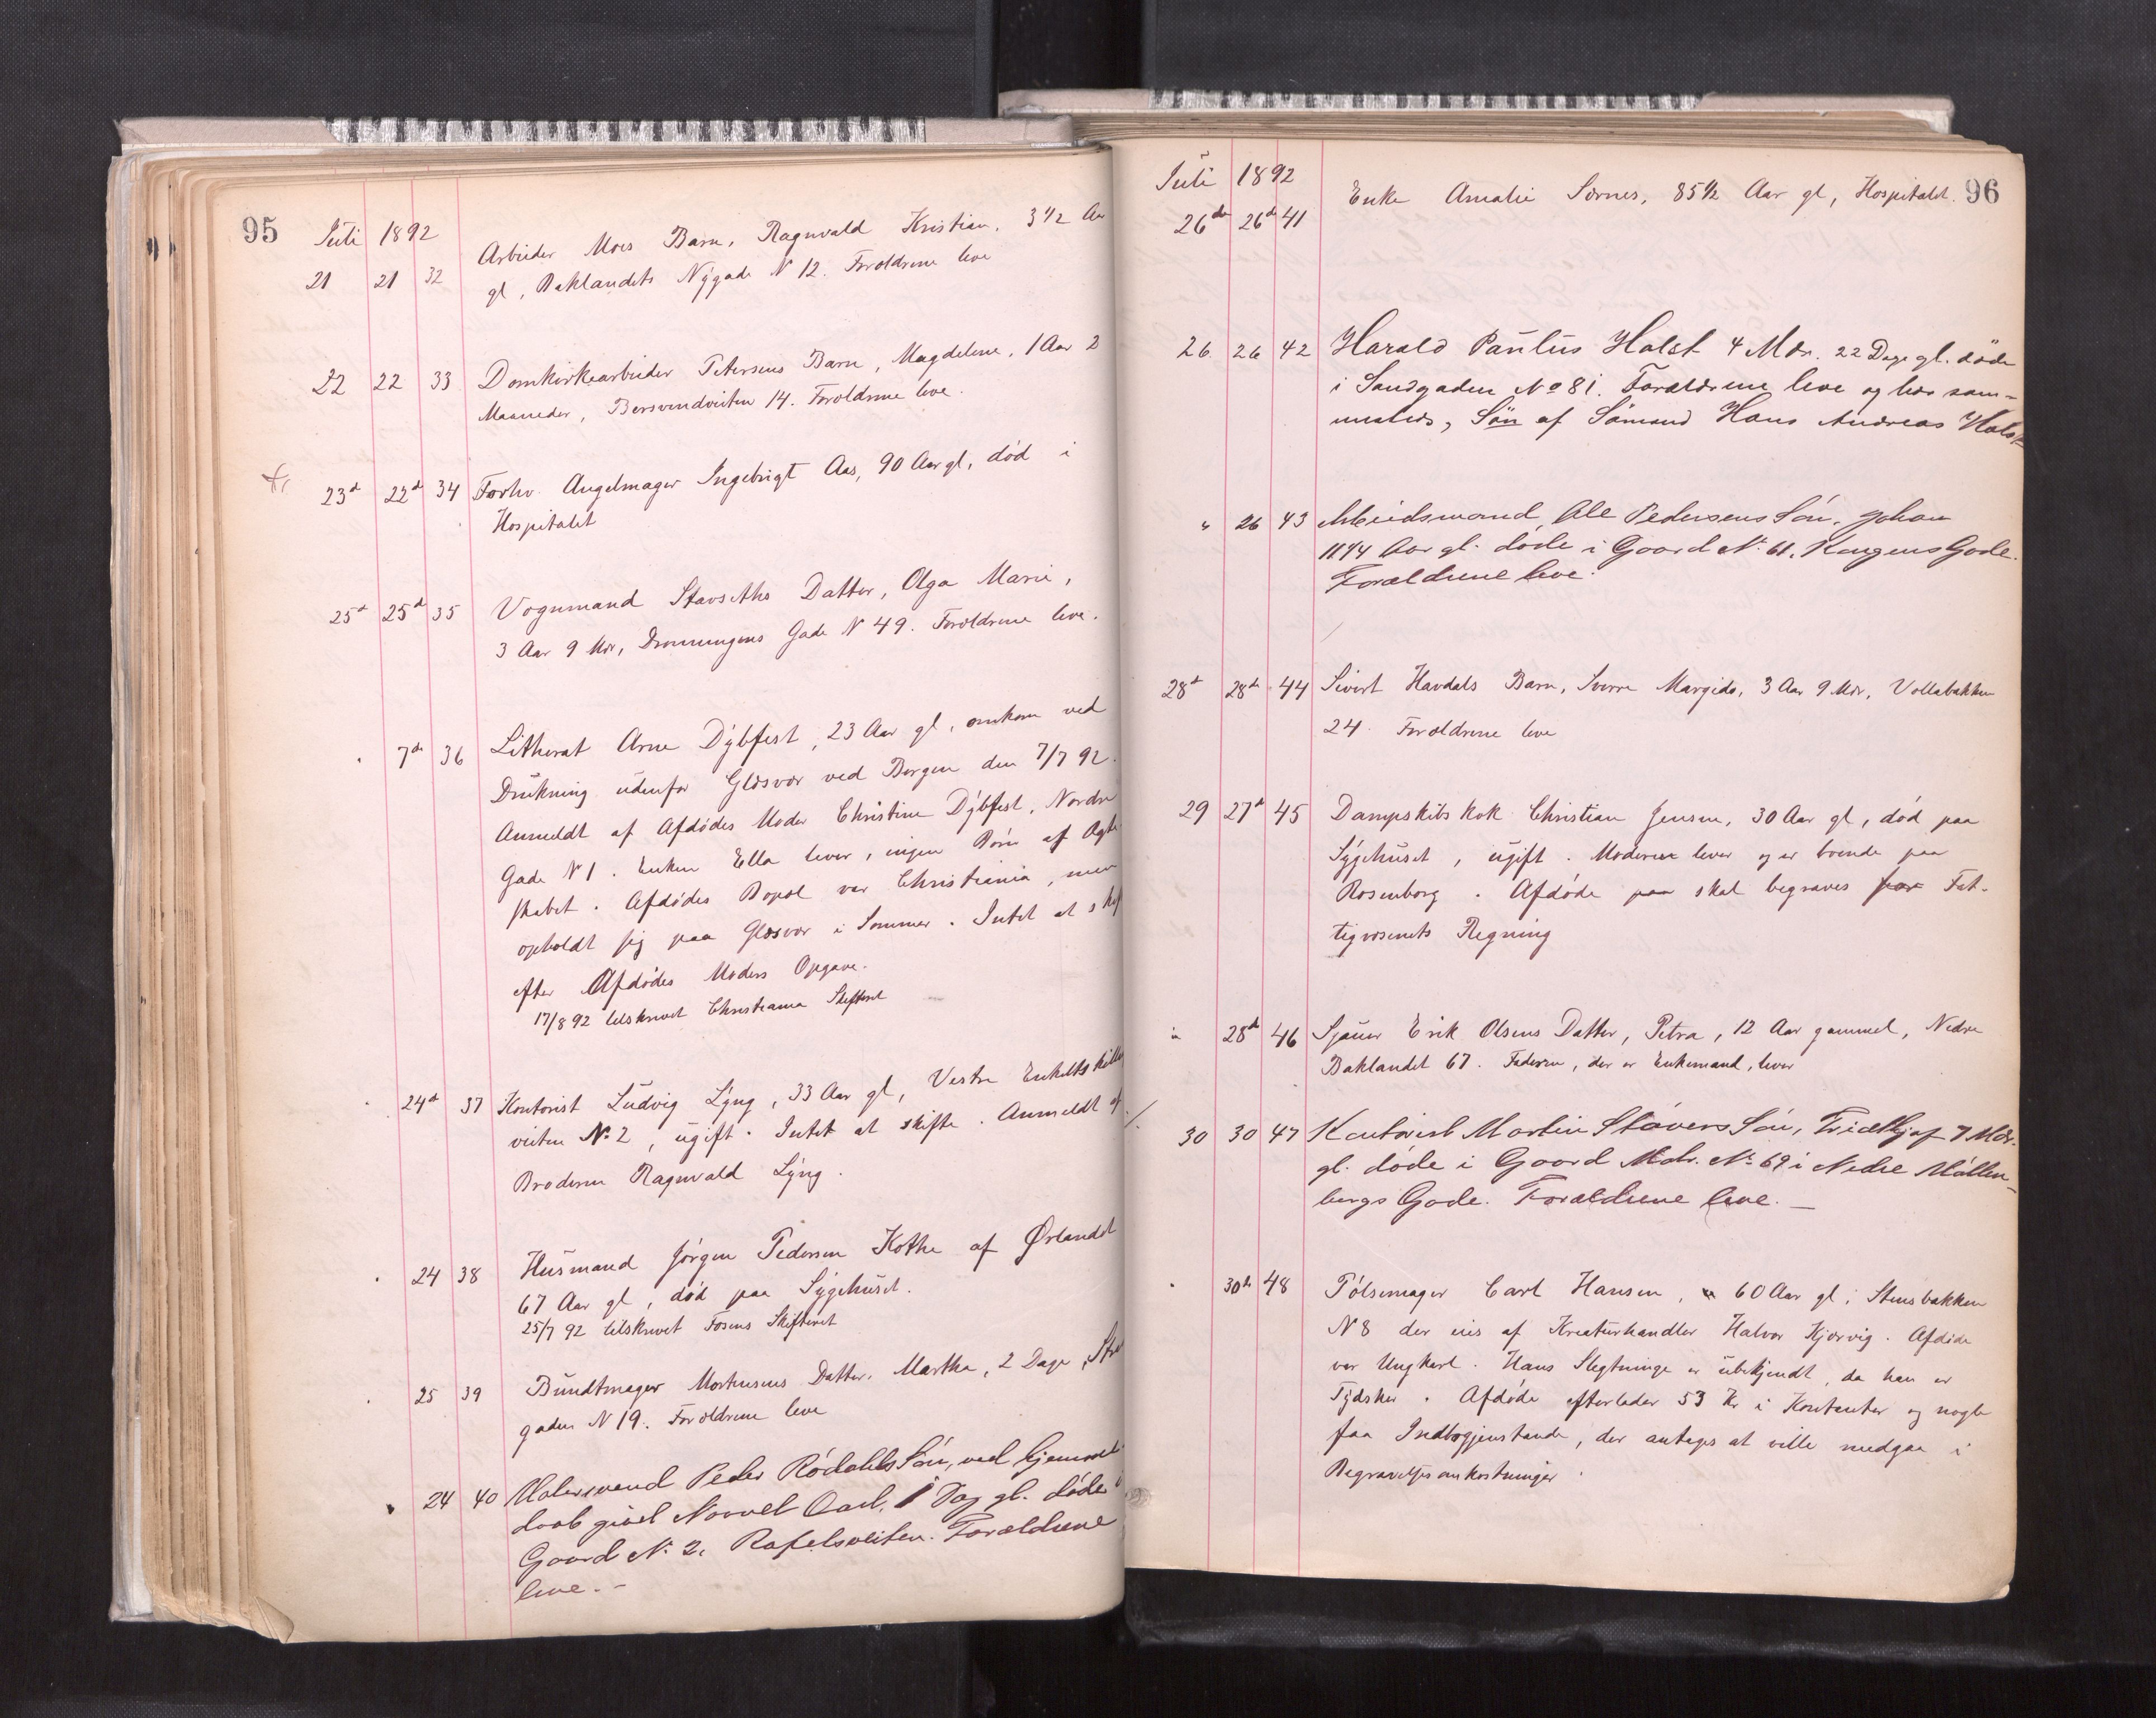 95
Juli 1892
21 21 32 Arbeider Moes Barn, Ragnvald Kristian, 3 1/2 Aar
gl, Baklandets Nygade N 12. Forældrene leve
22 22 33 Domkirkearbeider Petersens Barn, Magdelene, 1 Aar 2
Maaneder, Bersvendveiten 14. Forældrene leve.
23d 22d 34 Forhv. Angelmager Ingebrigt Aas, 90 Aar gl, død i
Hospitalet
25d 25d 35 Vognmand Stavseths Datter, Olga Marie,
3 Aar 9 Mdr, Dronningens Gade N 49. Forældrene leve.
7de 36 Litherat Arne Dybfest, 23 Aar gl, omkom ved
Drukning udenfor Glesvær ved Bergen den 7/7 92.
Anmeldt af Afdødes Moder Christine Dybfest, Nordre
Gade N 1. Enken Ella lever, ingen Børn af Ægte
skabet. Afdødes Bopæl var Christiania, men
opholdt sig paa Glesvær i Sommer. Intet at skif
efter Afdødes Moders Opgave.
17/8 92 tilskrevet Christiania Skifteret
24d 37 Kontorist Ludvig Lyng, 33 Aar gl, Vestre Enkeltskillings
veiten No 2, ugift. Intet at skifte. Anmeldt af
Broderen Ragnvald Lyng.
24 38 Husmand Jørgen Pedersen Kothe af Ørlandet
67 Aar gl, død paa Sygehuset.
25/7 92 tilskrevet Fosens Skifteret
25 39 Bundtmager Mortensens Datter, Martha, 2 Dage, Strand
gaden N 19. Forældrene leve
24 40 Malersvend Peder Rødahls Søn, ved hjemme
daab givet Navnet Carl, 1 Dag gl. døde i
Gaard No 2, Rafelsveiten. Forældrene
leve.-
96
Juli 1892
26de 26d 41 Enke Amalie Sornes, 85 1/2 Aar gl, Hospitalet.
26 26 42 Harald Paulus Holst 4 Mdr. 22 Dage gl. døde
i Sandgaden No 81. Forældrene leve og bor sam-
mesteds, Søn af Sømand Hans Andreas Holst
" 26 43 Arbeidsmand, Ole Pedersens Søn, Johan
11 1/4 Aar gl. døde i Gaard No 61, Kongens Gade.
Forældrene leve.
28d 28de 44 Sivert Havdals Barn, Sverre Margido, 3 Aar 9 Mdr, Vollabakken
24. Forældrene leve
29 27d 45 Dampskibskok Christian Jensen, 30 Aar gl, død paa
Sygehuset, ugift. Moderen lever og er boende paa
Rosenborg. Afdøde paa skal begraves for Fat-
tigvæsenets Regning
" 28d 46 Sjauer Erik Olsens Datter, Petra, 12 Aar gammel, Nedre
Baklandet 67. Faderen, der er Enkemand, lever
30 30 47 Kontorist Martin Støvers Søn, Fridthjof 7 Mdr.
gl. døde i Gaard Matr. No 69 i Nedre Møllen-
bergs Gade. Forældrene leve. -
30de 48 Pølsemager Carl Hansen, 60 Aar gl, Stensbakken
N 8 der eies af Kreaturhandler Halvor Kjørvig. Afdøde
var Ungkarl. Hans Slegtninge er ubekjendt, da han er
Tydsker. Afdøde efterlader 53 Kr i Kontanter og nogle
faa Indbogjenstande, der antages at ville medgaa i
Begravelsesomkostninger.